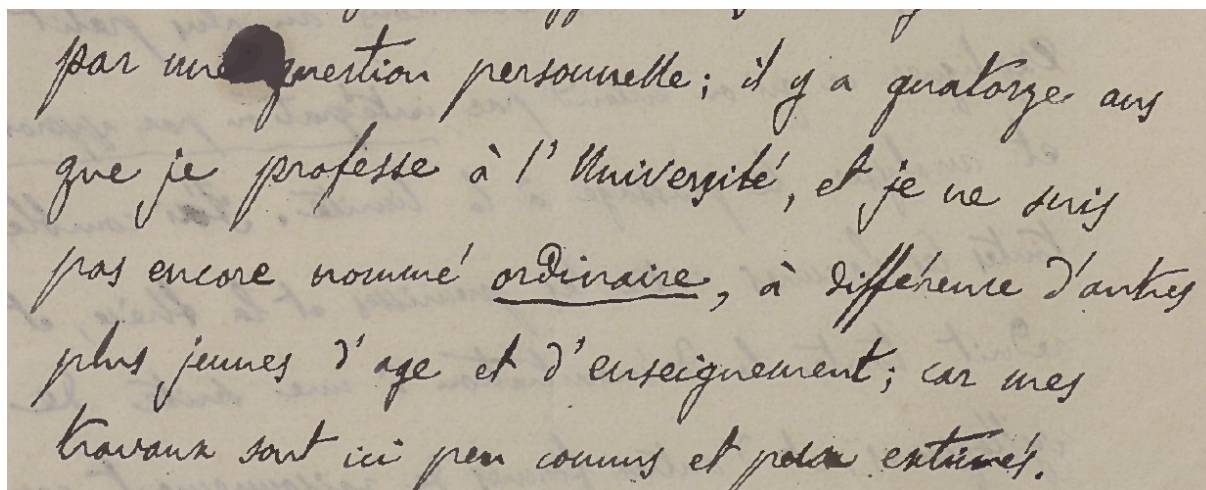 par une question personnelle; il y a quatorze ans
que je professe à l'Université, et je ne suis
pas encore nommé ordinaire, à différence d'autres
plus jeunes d'age et d'enseignement; car mes
travaux sont ici peu connus et peu estimés.